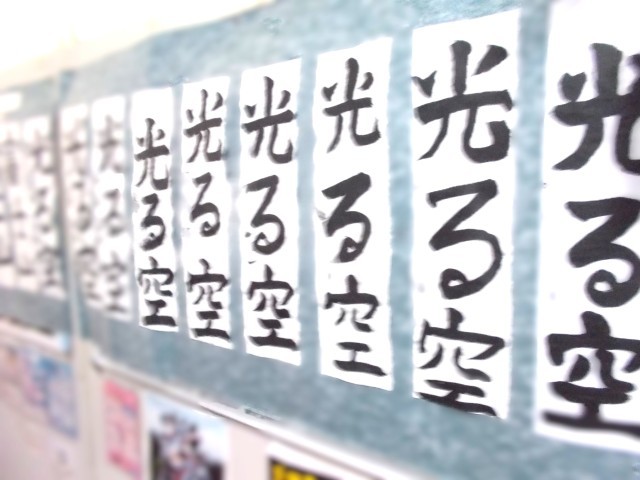 光る空
光る空
光る空
光る空
光る空
光る空
光る空